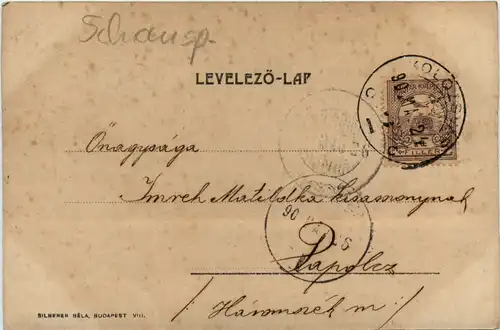 Schausp.
LEVELEZŐ-LAP
KOLOZS
FILLÉR
Önagysága
Imreh Matildka kisasszonynak
Papolcz
/ Háromszék m /
SILBERER BÉLA, BUDAPEST VIII.